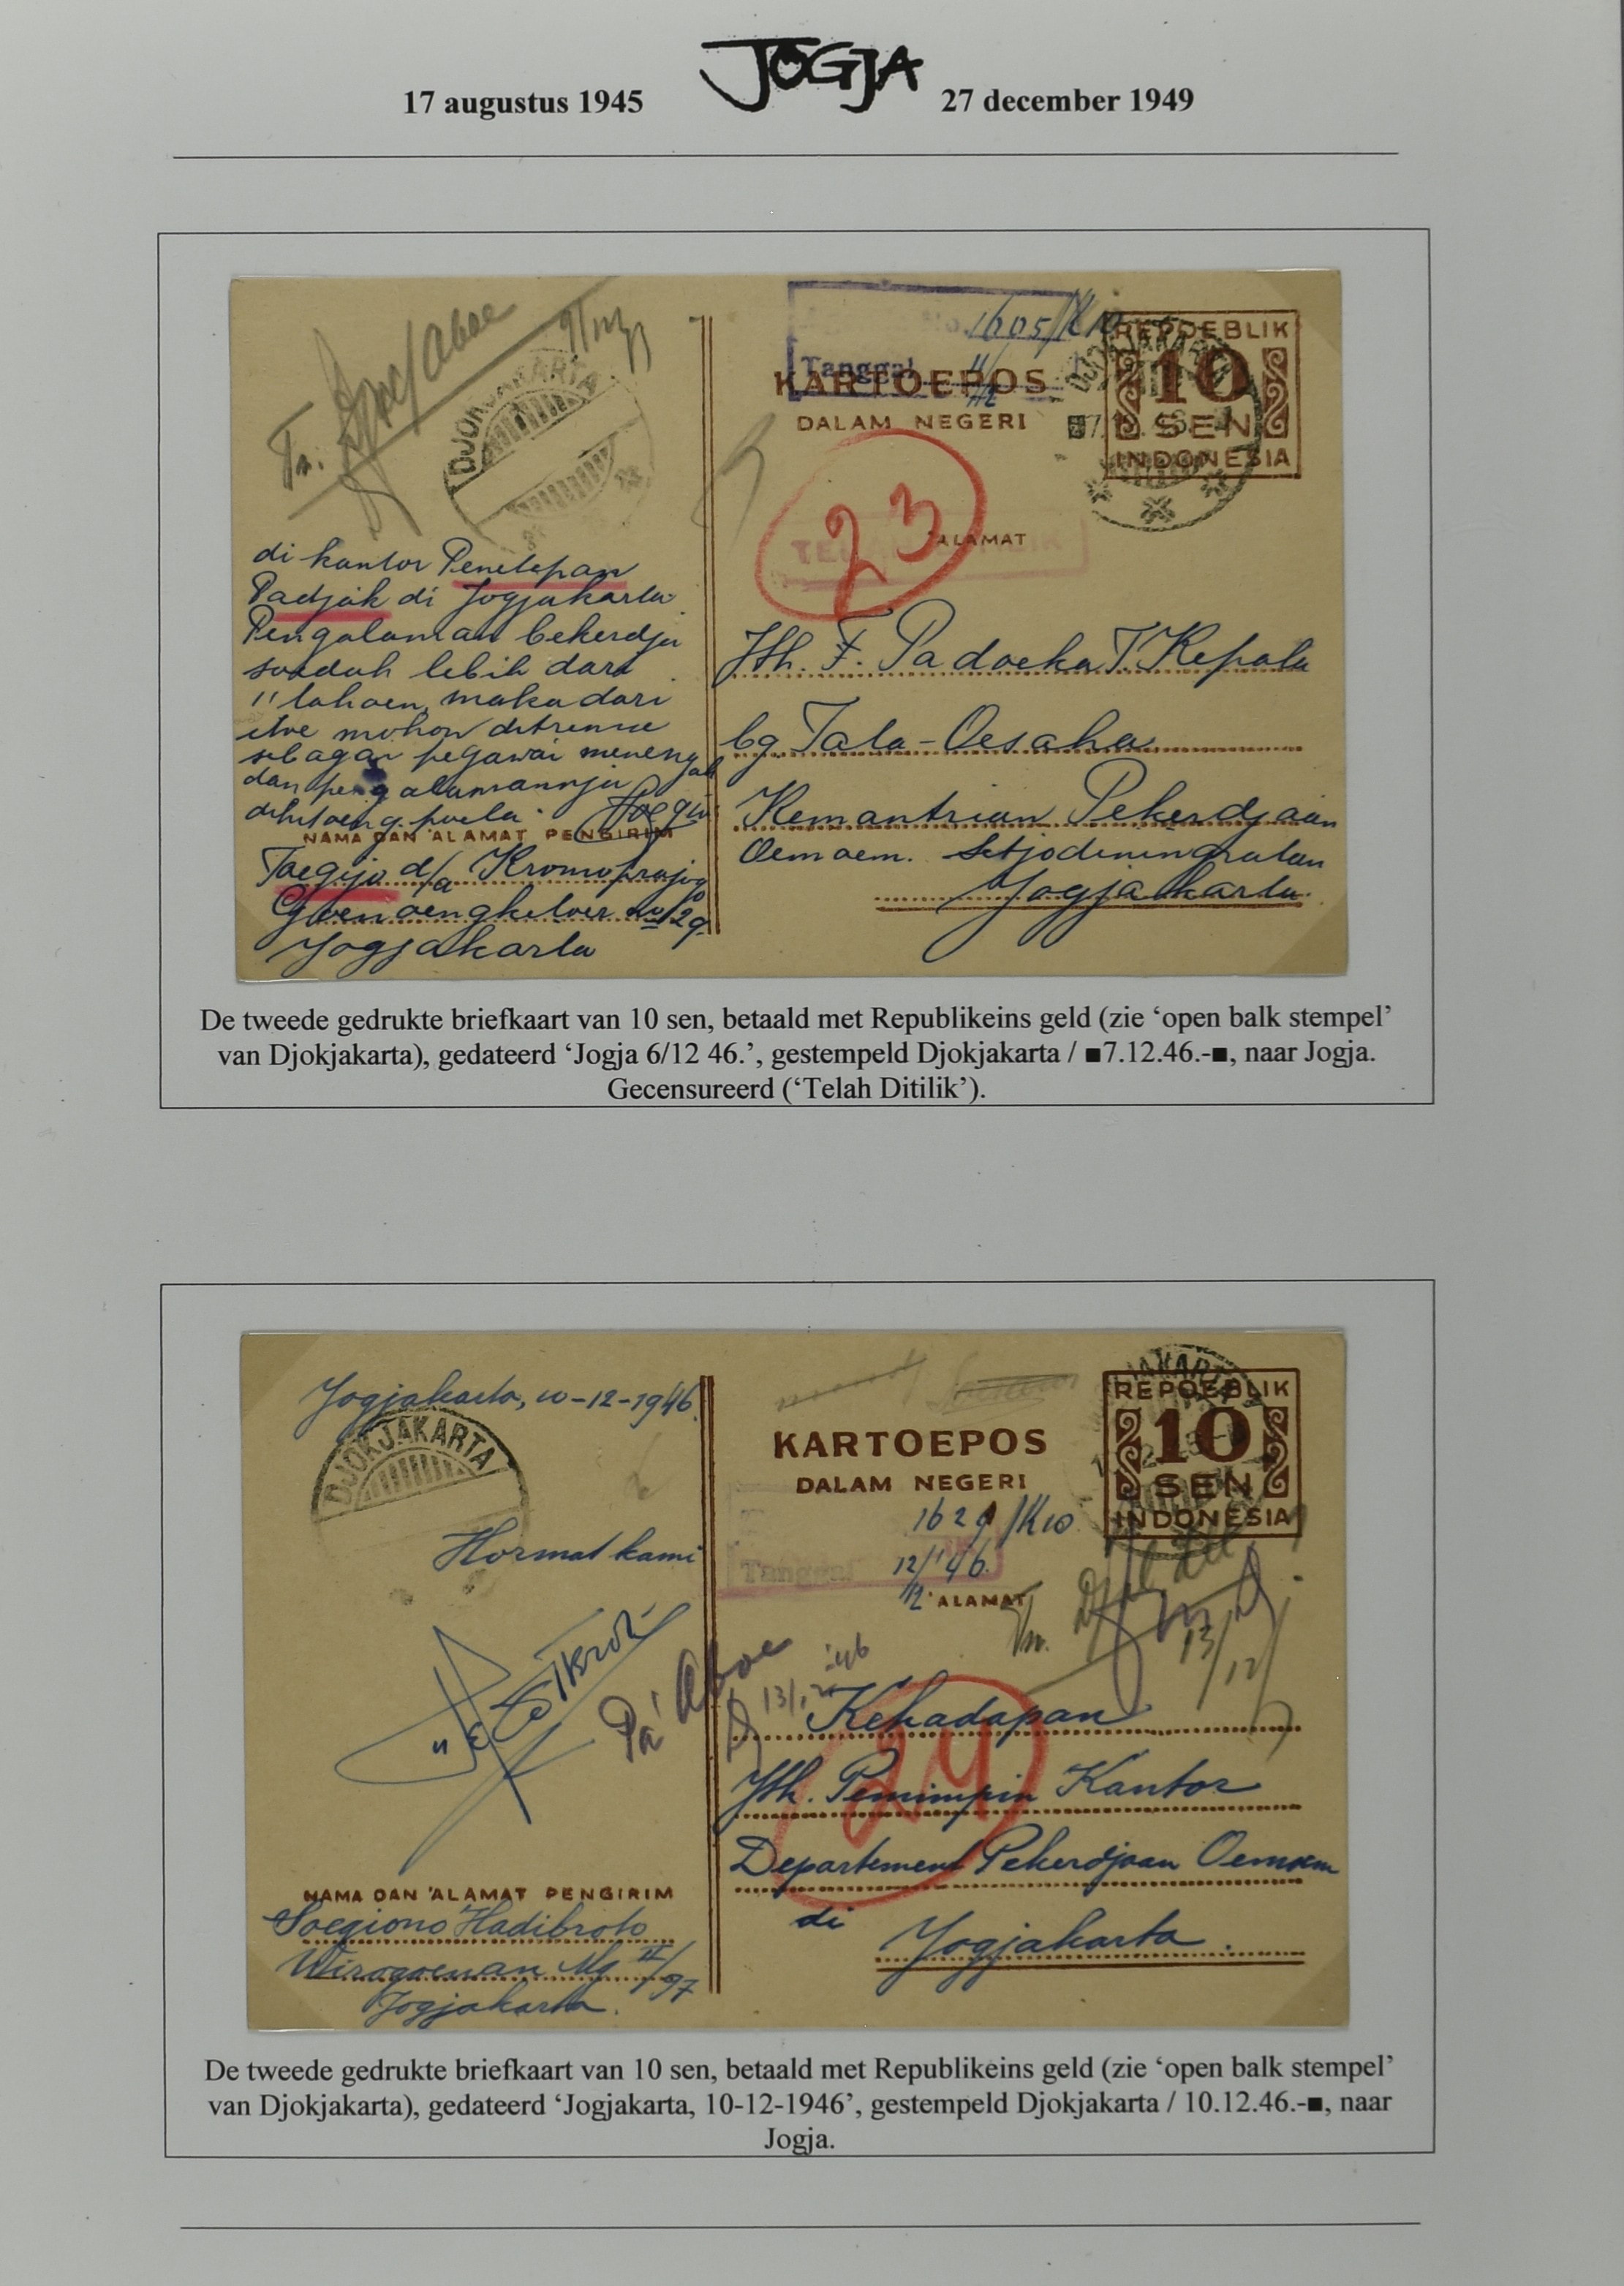 17 augustus 1945 JOGJA 27 december 1949
DJOKJAKARTA
1605/K10
Tanggal 11/12
KARTOEPOS
DALAM NEGERI
REPOEBLIK
10
SEN
INDONESIA
23
'ALAMAT
di kantor Penetepan
Padjak di Jogjakarta
Pengalaman bekerdja
soedah lebih dari
11 tahoen, maka dari
itoe mohon ditrima
sebagai pegawai menengah
dan pengalamannja
dihitoeng poela.
NAMA DAN 'ALAMAT PENGIRIM
Toegijo d/a Kromoprajo
Goenoengketoer no 129
Jogjakarta
Jth. P. Padoeka T. Kepala
bg. Tata-Oesaha
Kemantrian Pekerdjaan
Oemoem. Setjodiningratan
Jogjakarta.
De tweede gedrukte briefkaart van 10 sen, betaald met Republikeins geld (zie ‘open balk stempel’
van Djokjakarta), gedateerd ‘Jogja 6/12 46.’, gestempeld Djokjakarta / ■7.12.46.-■, naar Jogja.
Gecensureerd (‘Telah Ditilik’).
Jogjakarta, 10-12-1946.
DJOKJAKARTA
Hormat kami
KARTOEPOS
DALAM NEGERI
REPOEBLIK
10
SEN
INDONESIA
1621/K10
Tanggal 12/12 '46.
'ALAMAT
13/12
Pa' Aboe
13/12 '46
24
Kehadapan
Jth. Pemimpin Kantor
Departement Pekerdjaan Oemoem
di Jogjakarta.
NAMA DAN 'ALAMAT PENGIRIM
Soegiono Hadibroto
Wirogoenan Mg II/97
Jogjakarta.
De tweede gedrukte briefkaart van 10 sen, betaald met Republikeins geld (zie ‘open balk stempel’
van Djokjakarta), gedateerd ‘Jogjakarta, 10-12-1946’, gestempeld Djokjakarta / 10.12.46.-■, naar
Jogja.